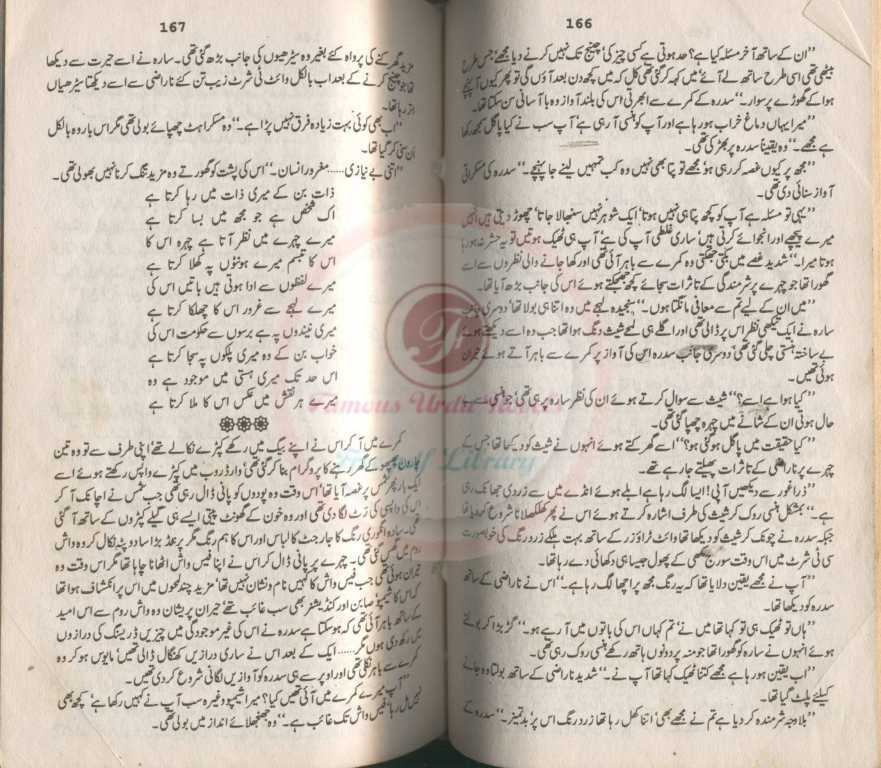 166
’’ان کے ساتھ آخر مسئلہ کیا ہے؟ حد ہوتی ہے کسی چیز کی‘ چینج تک نہیں کرنے دیا مجھے‘ جس طرح
بیٹھی تھی اسی طرح ساتھ لے آئے‘ میں کہہ کر گئی تھی کل کہ میں کچھ دن بعد آؤں گی تو پھر کیوں آ پہنچے
ہوا کے گھوڑے پر سوار۔‘‘ سدرہ کے کمرے سے ابھرتی اس کی بلند آواز وہ با آسانی سن سکتا تھا۔
’’میرا یہاں دماغ خراب ہو رہا ہے اور آپ کو ہنسی آ رہی ہے‘ آپ سب نے کیا پاگل سمجھ رکھا
ہے مجھے۔‘‘ وہ یقیناً سدرہ پر بھڑکی تھی۔
’’مجھ پر کیوں غصہ کر رہی ہو‘ مجھے تو پتا بھی نہیں وہ کب تمہیں لینے جا پہنچے۔‘‘ سدرہ کی مسکراتی
آواز سنائی دی تھی۔
’’یہی تو مسئلہ ہے آپ کو کچھ پتا ہی نہیں ہوتا‘ ایک شوہر نہیں سنبھالا جاتا‘ چھوڑ دیتی ہیں انہیں
میرے پیچھے اور انجوائے کرتی ہیں‘ ساری غلطی آپ کی ہے‘ آپ ہی ٹھیک ہوتیں تو یہ حشر نہ ہو رہا
ہوتا میرا۔‘‘ شدید غصے میں بکتی جھکتی وہ کمرے سے باہر آئی تھی اور کھا جانے والی نظروں سے اسے
گھورا تھا جو چہرے پر شرمندگی کے تاثرات سجائے کچھ جھجکتے ہوئے اس کی جانب بڑھ آیا تھا۔
’’میں ان کے لیے تم سے معافی مانگتا ہوں۔‘‘ سنجیدہ لہجے میں وہ اتنا ہی بولا تھا‘ دوسری جانب
سارہ نے ایک تیکھی نظر اس پر ڈالی تھی اور اگلے ہی لمحے شیث دنگ ہوا تھا جب وہ اسے دیکھتے ہوئے
بے ساختہ ہنستی چلی گئی تھی‘ دوسری جانب سدرہ اس کی آواز پر کمرے سے باہر آتے ہوئے حیران
ہوئی تھیں۔
’’کیا ہوا ہے اسے؟‘‘ شیث سے سوال کرتے ہوئے ان کی نظر سارہ پر ہی تھی‘ جو ہنسی سے بے
حال ہوتی ان کے شانے میں چہرہ چھپا گئی تھی۔
’’کیا حقیقت میں پاگل ہو گئی ہو؟‘‘ اسے گھر کتے ہوئے انہوں نے شیث کو دیکھا تھا جس کے
چہرے پر ناراضی کے تاثرات پھیلتے جا رہے تھے۔
’’ذرا غور سے دیکھیں آپی! ایسا لگ رہا ہے ابلے ہوئے انڈے میں سے زردی جھانک رہی
ہے۔‘‘ بمشکل ہنسی روک کر شیث کی طرف اشارہ کرتے ہوئے اس نے پھر کھلکھلانا شروع کیا تھا
جبکہ سدرہ نے چونک کر شیث کو دیکھا تھا وائٹ ٹراؤزر کے ساتھ بہت ہلکے زرد رنگ کی خوبصورت
سی ٹی شرٹ میں اس وقت سورج مکھی کے پھول جیسا ہی دکھائی دے رہا تھا۔
’’آپ نے مجھے یقین دلایا تھا کہ یہ رنگ مجھ پر اچھا لگ رہا ہے۔‘‘ اس نے ناراضی کے ساتھ
سدرہ کو دیکھا تھا۔
’’ہاں تو ٹھیک ہی تو کہا تھا میں نے‘ تم کہاں اس کی باتوں میں آ رہے ہو۔‘‘ گڑبڑا کر بولتے
ہوئے انہوں نے سارہ کو گھورا تھا جو منہ پر دونوں ہاتھ رکھے ہنسی روک رہی تھی۔
’’اب یقین ہو رہا ہے مجھے کتنا ٹھیک کہا تھا آپ نے۔‘‘ شدید ناراضی کے ساتھ بولتا وہ جانے
کیلئے پلٹ گیا تھا۔
’’بلا وجہ شرمندہ کر دیا ہے تم نے مجھے بھی‘ اتنا کھل رہا تھا زرد رنگ اس پر‘ بدتمیز۔‘‘ سدرہ کے
167
مزید گھر کنے کی پرواہ کئے بغیر وہ سیڑھیوں کی جانب بڑھ گئی تھی۔ سارہ نے اسے حیرت سے دیکھا
تھا جو چینج کرنے کے بعد اب بالکل وائٹ ٹی شرٹ زیب تن کئے ناراضی سے اسے دیکھتا سیڑھیاں
اتر رہا تھا۔
’’اب بھی کوئی بہت زیادہ فرق نہیں پڑا ہے۔‘‘ وہ مسکراہٹ چھپائے بولی تھی مگر اس بار وہ بالکل
ان سنی کر گیا تھا۔
’’اتنی بے نیازی...... مغرور انسان۔‘‘ اس کی پشت کو گھورتے وہ مزید تنگ کرنا نہیں بھولی تھی۔
ذات بن کے میری ذات میں رہا کرتا ہے
اک شخص ہے جو مجھ میں بسا کرتا ہے
میرے چہرے میں نظر آتا ہے چہرہ اس کا
اس کا تبسم میرے ہونٹوں پہ کھلا کرتا ہے
میرے لفظوں سے ادا ہوتی ہیں باتیں اس کی
میرے لہجے سے غرور اس کا چھلکا کرتا ہے
میری نیندوں پہ ہے برسوں سے حکومت اس کی
خواب بن کے وہ میری پلکوں پہ سجا کرتا ہے
اس حد تک میری ہستی میں موجود ہے وہ
میرے ہر نقش میں عکس اس کا ملا کرتا ہے
کمرے میں آ کر اس نے اپنے بیگ میں رکھے کپڑے نکالے تھے‘ اپنی طرف سے تو وہ تین
چار دن پھپو کے گھر رہنے کا پروگرام بنا کر گئی تھی‘ وارڈ روب میں کپڑے واپس رکھتے ہوئے اسے
ایک بار پھر شمس پر غصہ آیا تھا‘ اس وقت وہ پودوں کو پانی ڈال رہی تھی جب شمس نے اچانک آ کر
اس کی واپسی کی رٹ لگا دی تھی اور وہ خون کے گھونٹ پیتی ایسے ہی گیلے کپڑوں کے ساتھ آ گئی
تھی۔ سیاہ و انگوری رنگ کا جارجٹ کا لباس اور اس کا ہم رنگ مگر پرنٹڈ بڑا سا دوپٹہ نکال کر وہ واش
روم میں گھس گئی تھی۔ چہرے پر پانی ڈال کر اس نے اپنا فیس واش اٹھانا چاہا تھا مگر اس وقت وہ
حیران ہوئی تھی جب فیس واش کا کہیں نام و نشان نہیں تھا‘ مزید چند لمحوں میں اس پر انکشاف ہوا تھا
کہ اس کا شیمپو‘ صابن اور کنڈیشنر بھی سب غائب تھے‘ حیران پریشان وہ واش روم سے اس امید
کے ساتھ باہر آئی تھی کہ ہو سکتا ہے سدرہ نے اس کی غیر موجودگی میں چیزیں ڈریسنگ کی درازوں
میں رکھ دی ہوں مگر...... ایک کے بعد اس نے ساری درازیں کھنگال ڈالی تھیں‘ مایوس ہو کر وہ
کمرے سے باہر نکلی تھی اور اوپر سے ہی سدرہ کو آوازیں لگانی شروع کر دی تھیں۔
’’آپ میرے کمرے میں آئی تھیں کیا؟ میرا شیمپو وغیرہ سب آپ نے کہیں رکھا ہے‘ کچھ بھی
نہیں مل رہا‘ فیس واش تک غائب ہے۔‘‘ وہ جھنجھلائے انداز میں بولی تھی۔
Famous Urdu Novels
Free Pdf Library